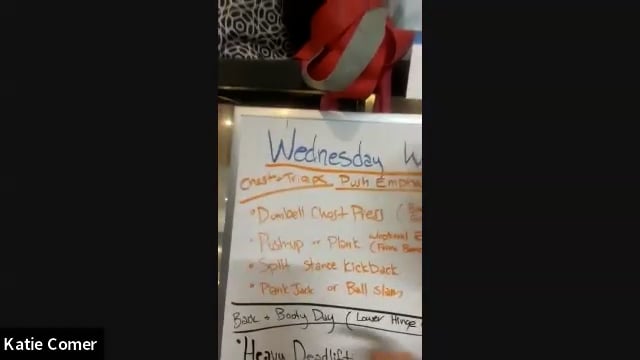 Wednesday W
Chest + Triceps Push Empha
• Dumbell Chest Press (
• Push-up or Plank w/optional
(Forearms
• Split Stance Kickback
• Plank Jack or Ball Slams
Back + Booty Day (Lower Hinge
• Heavy Deadlift
Katie Comer